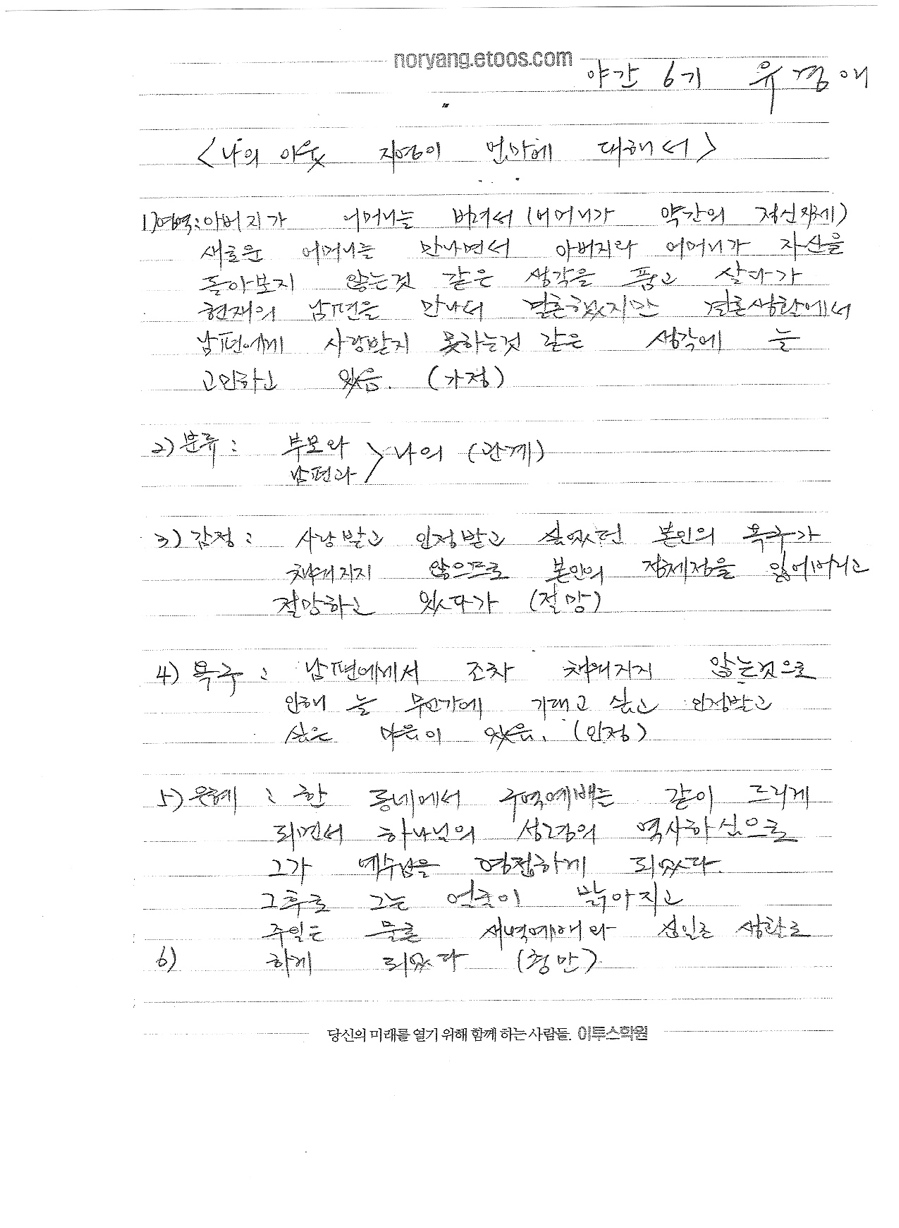 noryang.etoos.com
야간 6기 유경애
<나의 이웃 지영이 엄마에 대해서>
1)영역:아버지가 어머니를 버려서 (어머니가 약간의 정신장애)
새로운 어머니를 만나면서 아버지와 어머니가 자신을
돌아보지 않는것 같은 생각을 품고 살다가
현재의 남편을 만나서 결혼했지만 결혼생활에서
남편에게 사랑받지 못하는것 같은 생각에 늘
고민하고 있음. (가정)
2) 분류 : 부모와
남편과 > 나의 (관계)
3) 감정 : 사랑받고 인정받고 싶었던 본인의 욕구가
채워지지 않으므로 본인의 을 잃어버리고
절망하고 있다가 (절망)
4) 욕구 : 남편에게서 조차 채워지지 않는것으로
인해 늘 무언가에 기대고 싶고 인정받고
싶은 마음이 있음. (인정)
5) 은혜 : 한 동네에서 구역예배를 같이 드리게
되면서 하나님의 성령의 역사하심으로
그가 예수님을 영접하게 되었다.
그후로 그는 얼굴이 밝아지고
주일은 물론 새벽예배와 생활로
6) 하게 되었다 (충만)
당신의 미래를 열기 위해 함께 하는 사람들. 이투스학원